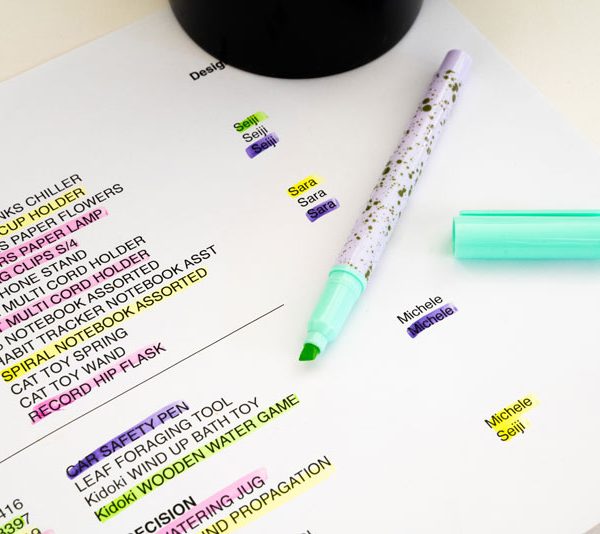 Seiji
Seiji
Seiji
CHILLER
CUP HOLDER
PAPER FLOWERS
Sara
PAPER LAMP
Sara
CLIPS S/4
Sara
STAND
MULTI CORD HOLDER
MULTI CORD HOLDER
NOTEBOOK ASSORTED
TRACKER NOTEBOOK ASST
SPIRAL NOTEBOOK ASSORTED
CAT TOY SPRING
Michele
CAT TOY WAND
Michele
RECORD HIP FLASK
CAR SAFETY PEN
LEAF FORAGING TOOL
Kidoki WIND UP BATH TOY
Michele
Kidoki WOODEN WATER GAME
Seiji
WATERING JUG
PROPAGATION